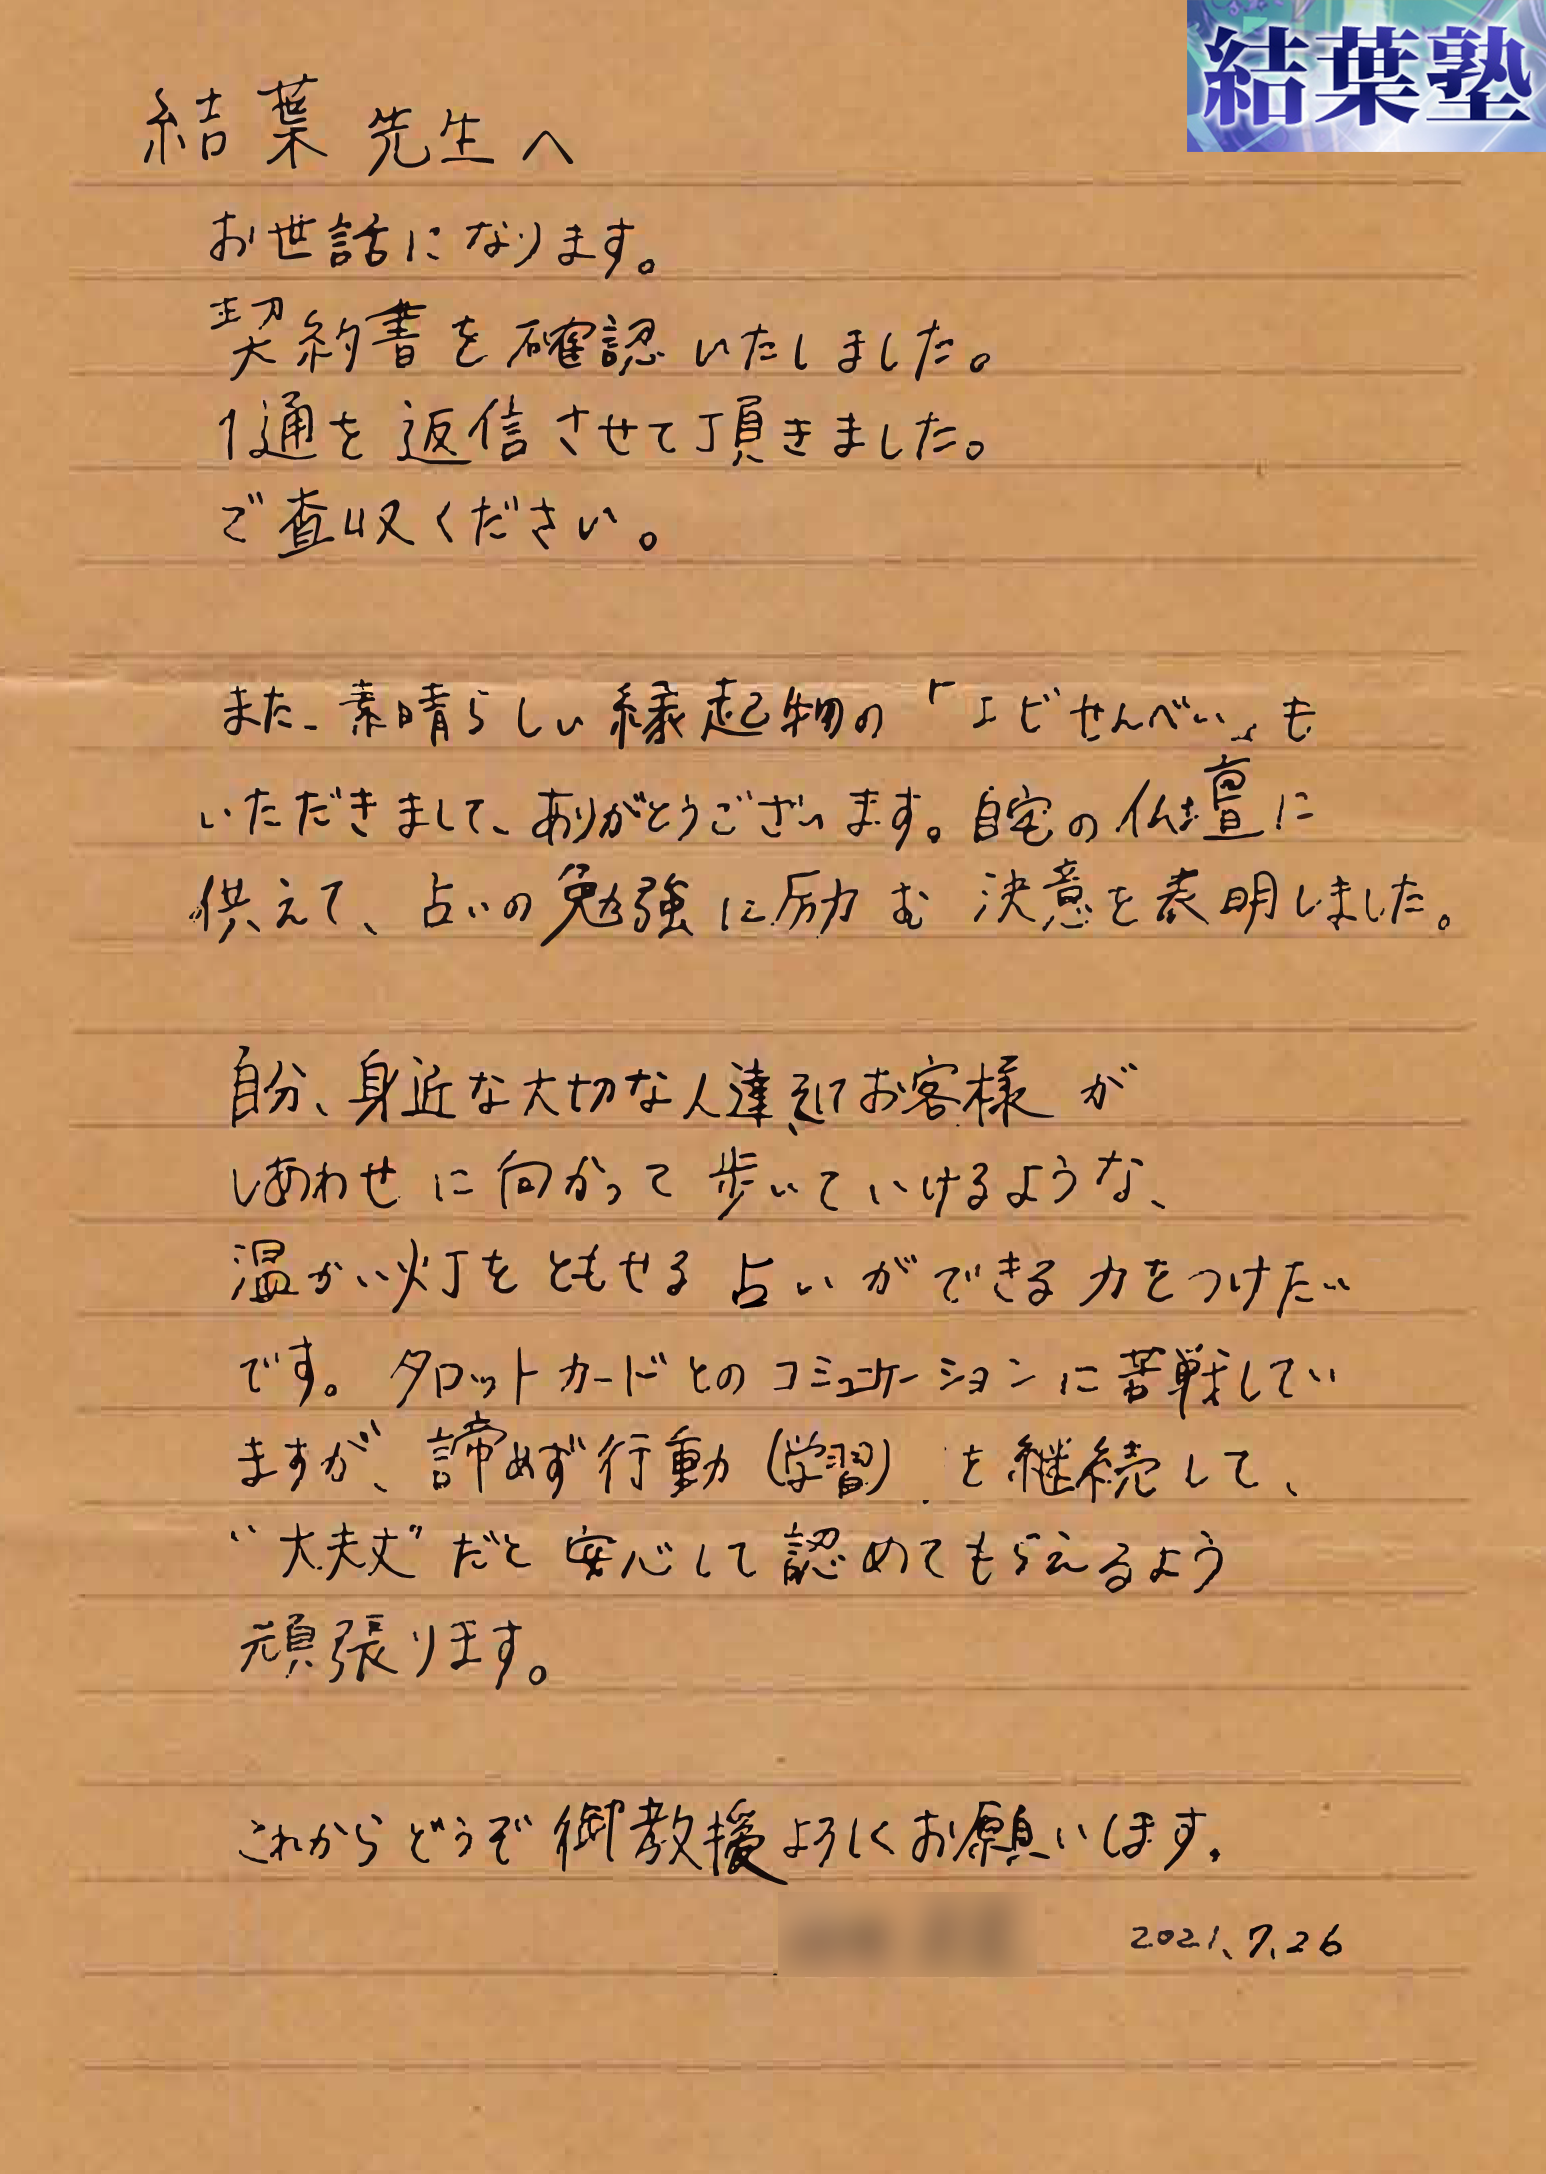 結葉塾
結葉先生へ
お世話になります。
契約書を確認いたしました。
1通を返信させて頂きました。
ご査収ください。
また、素晴らしい縁起物の「エビせんべい」も
いただきまして、ありがとうございます。自宅の仏壇に
供えて、占いの勉強に励む 決意を表明しました。
自分、身近な大切な人達、そしてお客様が
しあわせに向かって歩いていけるような、
温かい灯をともせる占いができる力をつけたい
です。タロットカードとのコミュニケーションに苦戦してい
ますが、諦めず行動(学習)を継続して、
“大夫丈”だと安心して認めてもらえるよう
頑張ります。
これからどうぞ御教援よろしくお願いします。
2021.7.26